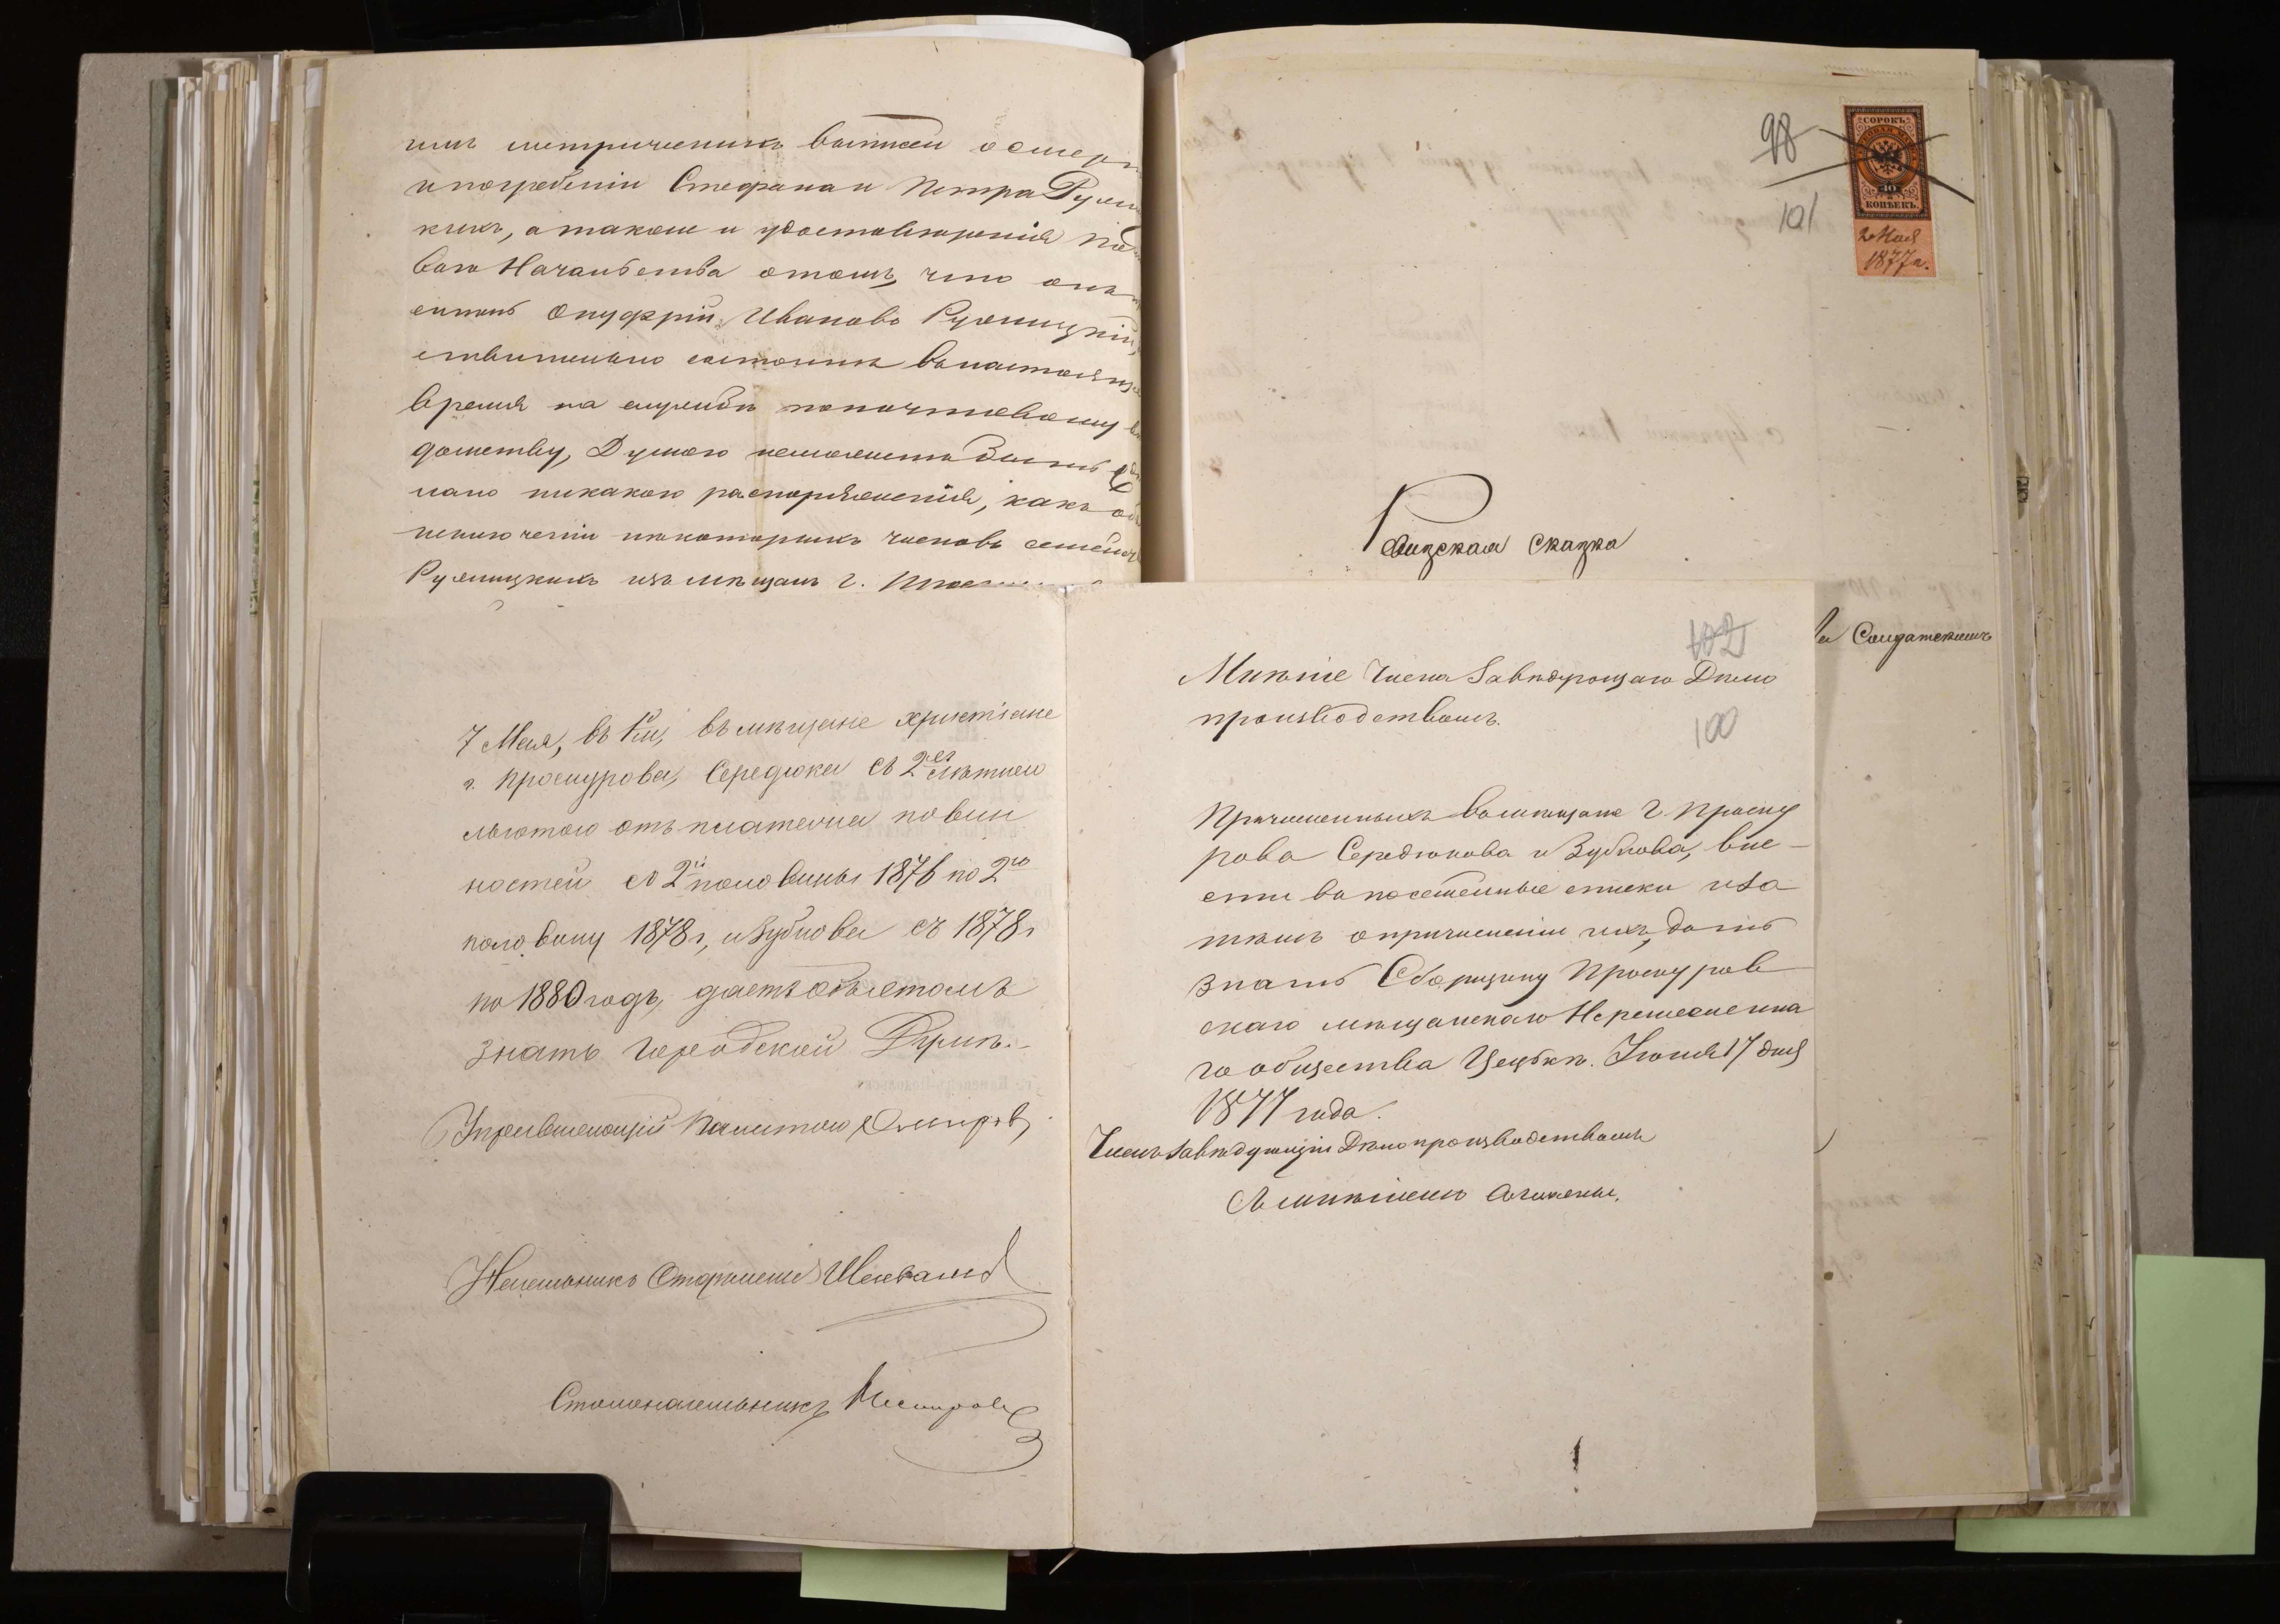 ихъ метрическихъ выписей о смерти
и погребеніи Стефана и Петра Ружиц
кихъ, а также и удостоверенія
ваго Начальства о томъ, что
Онуфрій Ивановъ Ружицкій,
ствительно состоитъ въ настоящее
время на службѣ по почтовому
домству, Думою не можетъ быть
лано никакого распоряженія, какъ
исключеніи нѣкоторыхъ членовъ
Ружицкихъ изъ мѣщанъ г.
98
101
СОРОКЪ
40
КОПѢЕКЪ.
2 Мая
1877 г.
Ревизская сказка
Солдатскимъ
7 Мая, въ мѣщане христіане
г. Проскурова, Середюка съ 2хъ лѣтнею
льготою отъ платежа повин
ностей со 2й половины 1876 по 2ю
половину 1878 г, и Зубкова съ 1878 г
по 1880 годъ, даетъ объ этомъ
знать Городской Думѣ.
Управляющій Палатою
Начальникъ Отдѣленія
Столоначальникъ
102
100
Мнѣніе Члена Завѣдующаго Дѣло
производствомъ.
Причисленныхъ въ мѣщане г. Проску
рова Середюкова и Зубкова, вне-
сти въ посемейные списки и за
тѣмъ о причисленіи ихъ, дать
знать Сборщику Проскуров
скаго мѣщанскаго Нерemесленна
го общества Цецбкѣ. Іюня 17 дня
1877 года.
Членъ Завѣдующій Дѣлопроизводствомъ
Съ мнѣніемъ согласны.